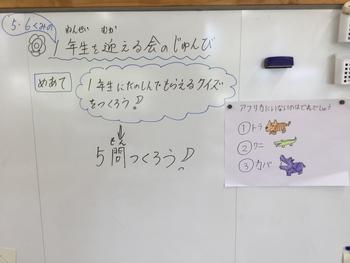 5・6くみの
ねんせい むか
1年生を迎える会のじゅんび
めあて
1年生にたのしんでもらえるクイズ
をつくろう!
もん
5問つくろう!
アフリカにいないのはどれでしょう
①トラ
②ワニ
③カバ